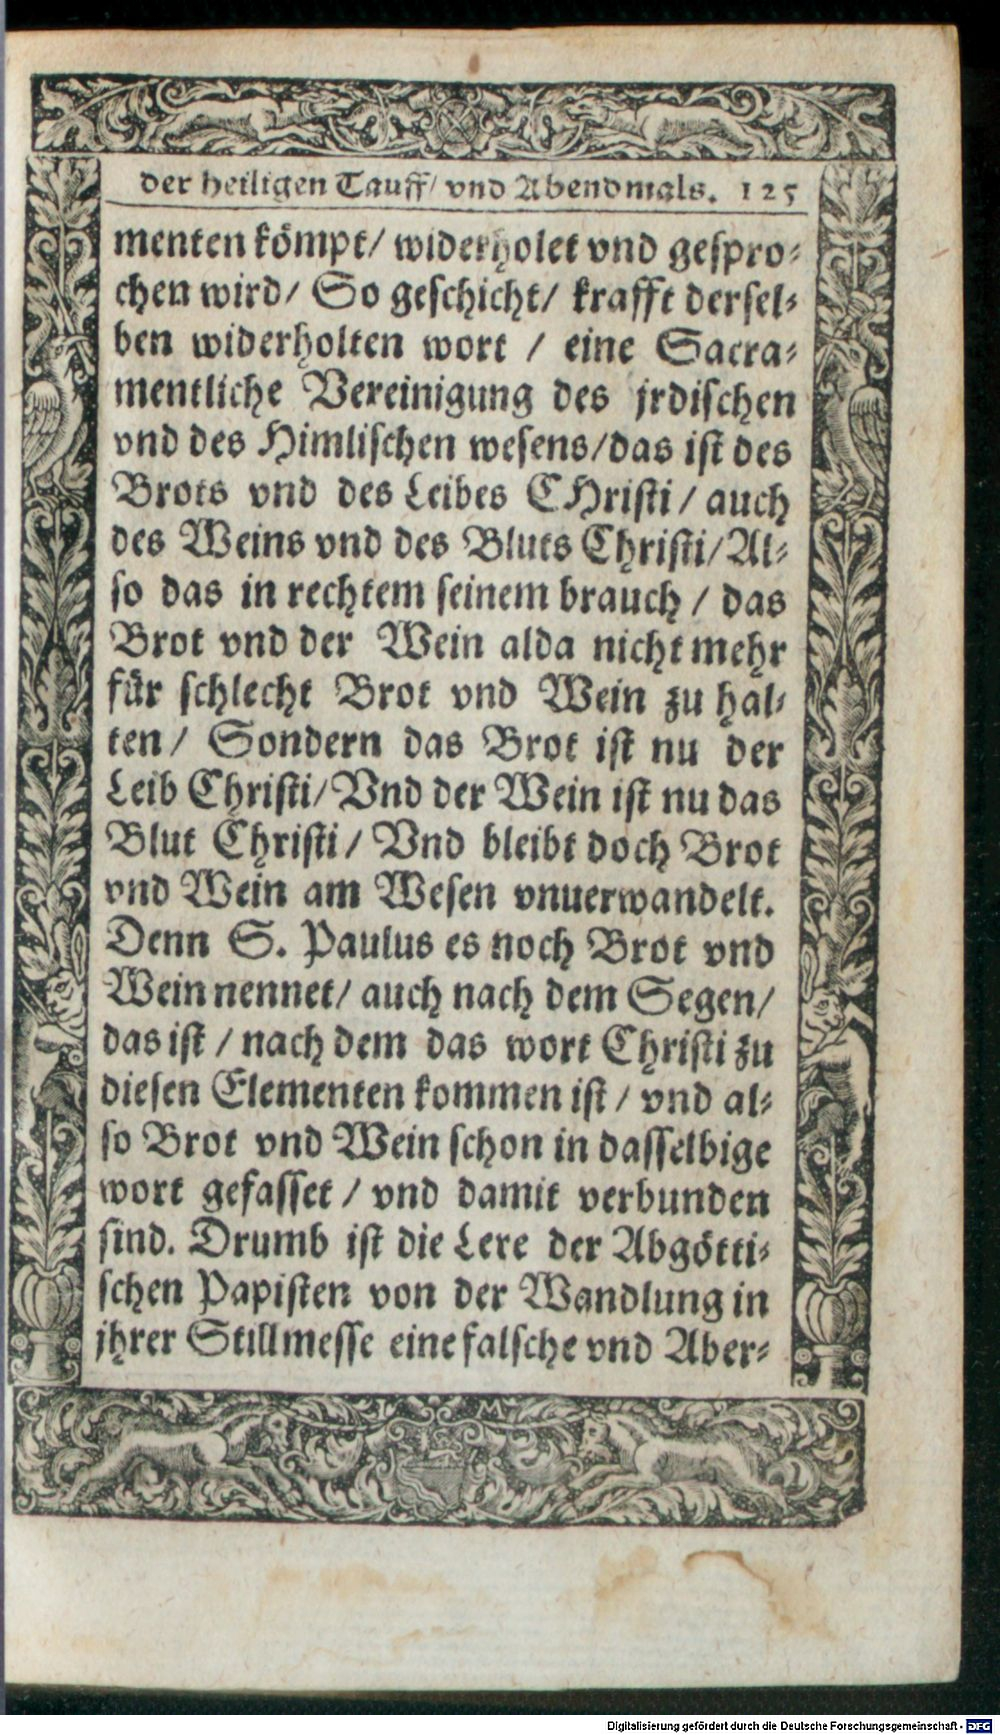 der heiligen Tauff/ vnd Abendmals. 125
menten kömpt/ widerholet vnd gespro-
chen wird/ So geschicht/ krafft dersel-
ben widerholten wort / eine Sacra-
mentliche Vereinigung des jrdischen
vnd des Himlischen wesens/das ist des
Brots vnd des Leibes CHristi / auch
des Weins vnd des Bluts Christi/Al-
so das in rechtem seinem brauch / das
Brot vnd der Wein alda nicht mehr
für schlecht Brot vnd Wein zu hal-
ten / Sondern das Brot ist nu der
Leib Christi/ Vnd der Wein ist nu das
Blut Christi / Vnd bleibt doch Brot
vnd Wein am Wesen vnuerwandelt.
Denn S. Paulus es noch Brot vnd
Wein nennet/ auch nach dem Segen/
das ist / nach dem das wort Christi zu
diesen Elementen kommen ist / vnd al-
so Brot vnd Wein schon in dasselbige
wort gefasset / vnd damit verbunden
sind. Drumb ist die Lere der Abgötti-
schen Papisten von der Wandlung in
jhrer Stillmesse eine falsche vnd Aber-
M
Digitalisierung gefördert durch die Deutsche Forschungsgemeinschaft - DFG